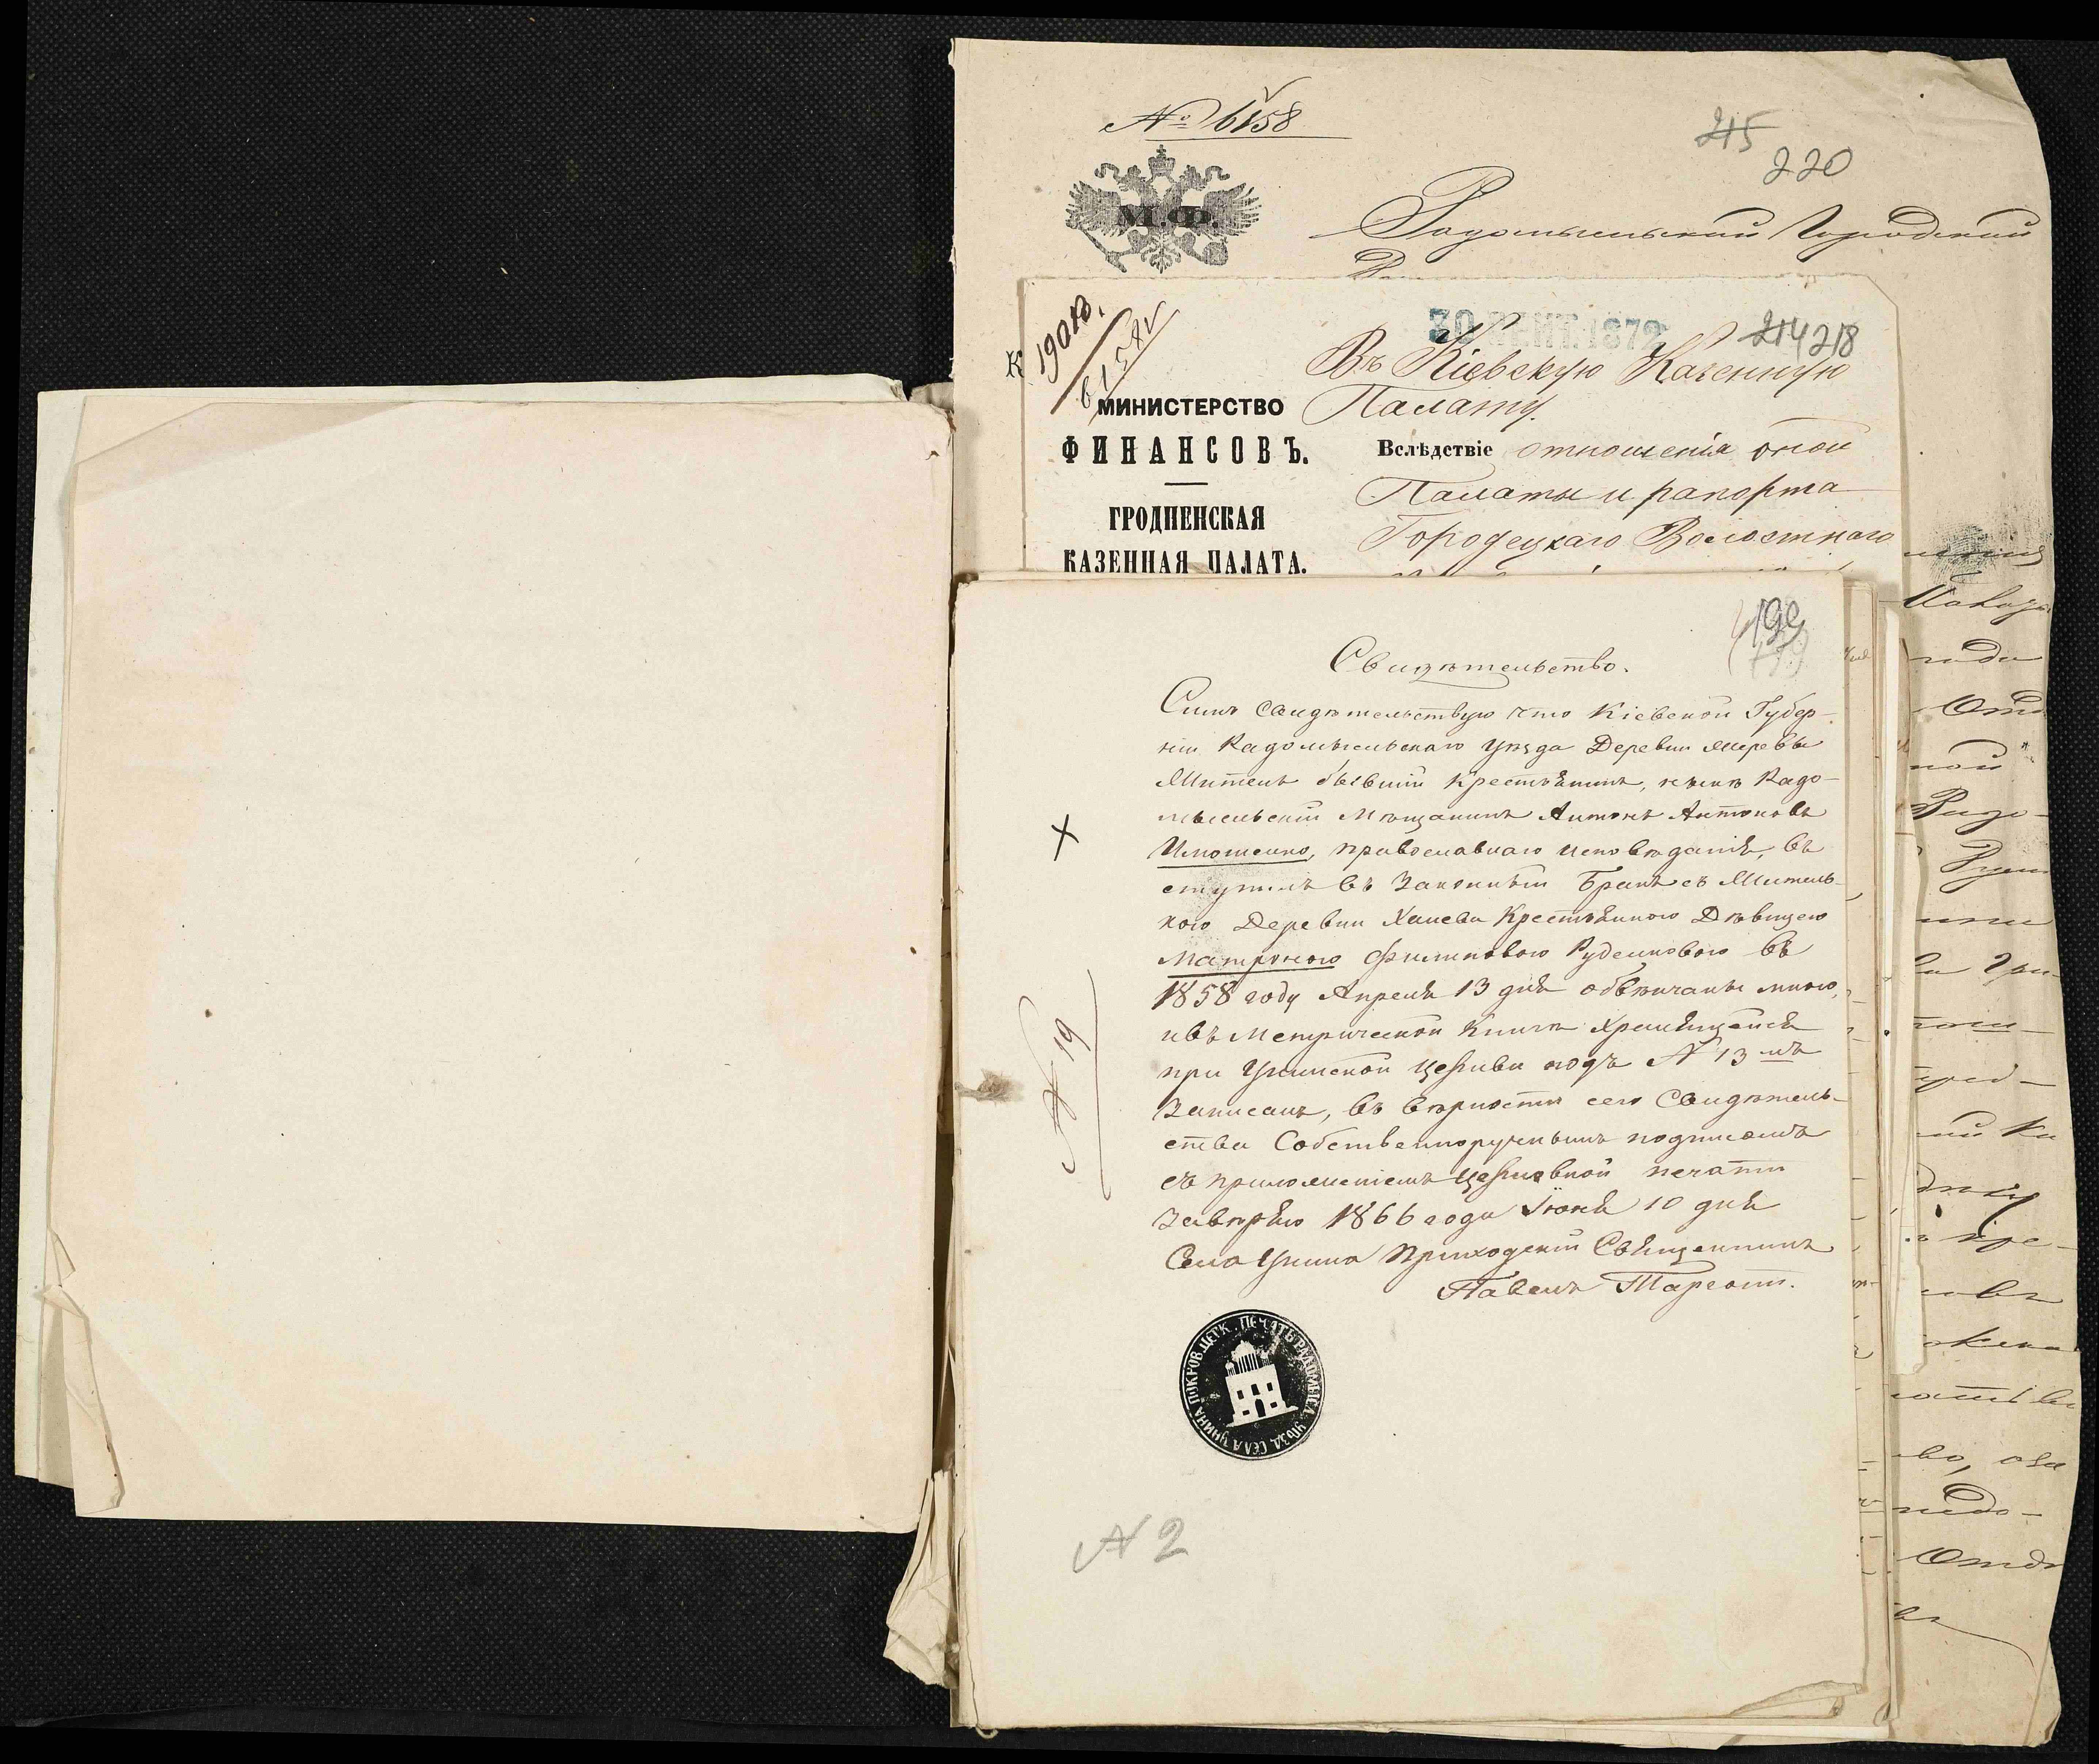 № 6158
М.Ф.
215
220
Радомысльскій Городской
190 10.
6158
30 СЕНТ. 1872
214 218
МИНИСТЕРСТВО
ФИНАНСОВЪ.
ГРОДНЕНСКАЯ
КАЗЕННАЯ ПАЛАТА.
Въ Кіевскую Казенную
Палату.
Вслѣдствіе отношенія оной
Палаты и рапорта
Городецкаго Волостнаго
199
Свидѣтельство.
Симъ Свидѣтельствую что Кіевской Губер-
ніи Радомысльскаго Уѣзда Деревни
Житель бывшій Крестьянинъ, нынѣ Радо-
мысльскій Мѣщанинъ Антонъ Антоновъ
православнаго исповѣданія, въ
ступилъ въ Законный Бракъ съ Житель-
кою Деревни Ханева Крестьянкою Дѣвицею
Матроною Филиповою Руденковою въ
1858 году Апреля 13 дня обвѣнчаны мною,
ивъ Метрической Книгѣ Хранящейся
при Унинской Церкви подъ № 13 мъ
Записанъ, въ вѣрности сего Свидѣтель-
ства Собственноручнымъ подписомъ
съ приложеніемъ Церковной печати
Завѣряю 1866 года Іюня 10 дня
Села Унина Приходскій Священникъ
Павелъ
№ 19
ПЕЧАТЬ РАДОМЫСЛ. УѢЗД. СЕЛА УНИНА ПОКРОВ. ЦЕРК.
№ 2